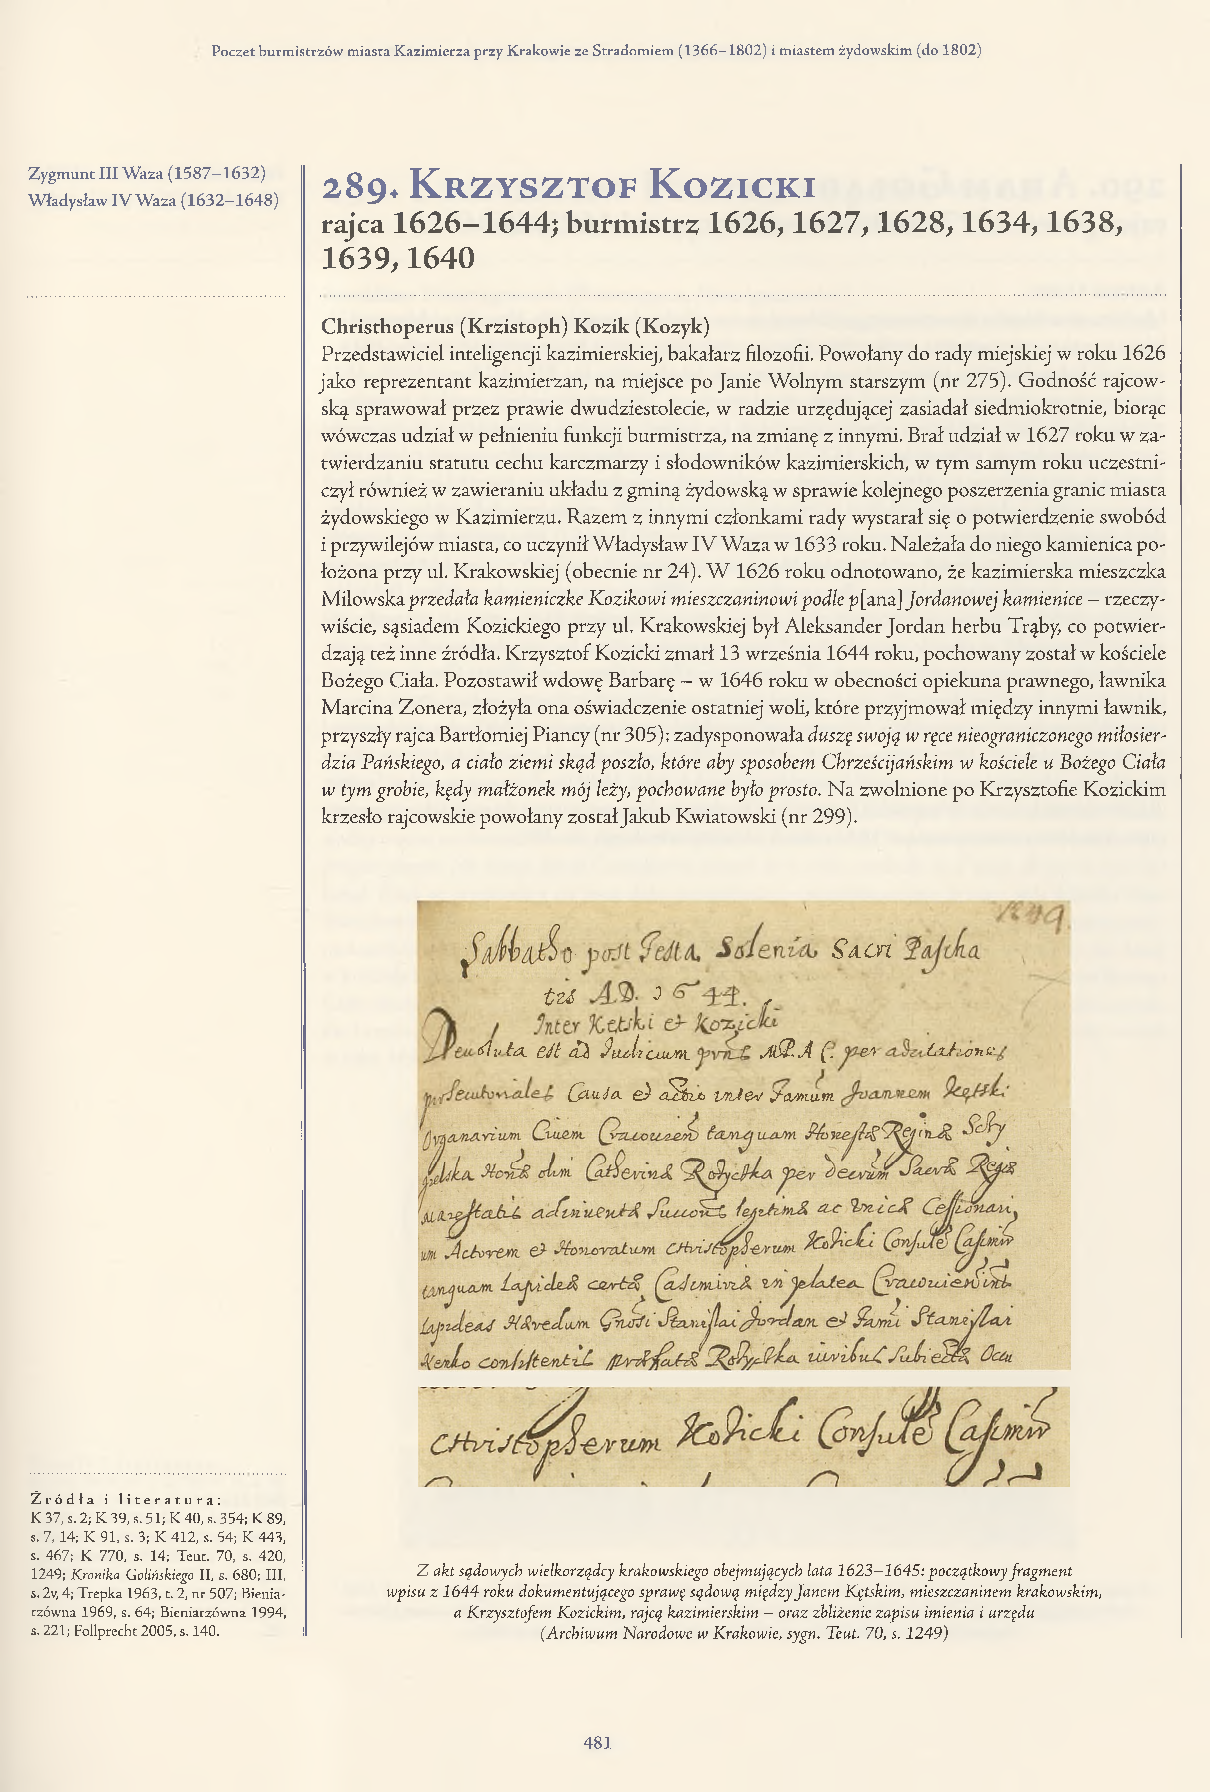 Poczet burmistrzów miasta Kazimierza przy Krakowie ze Stradomiem (1366–1802) i miastem żydowskim (do 1802)
Zygmunt III Waza (1587–1632)
Władysław IV Waza (1632–1648)
289. Krzysztof Kozicki
rajca 1626–1644; burmistrz 1626, 1627, 1628, 1634, 1638,
1639, 1640
Christhoperus (Krzistoph) Kozik (Kozyk)
Przedstawiciel inteligencji kazimierskiej, bakałarz filozofii. Powołany do rady miejskiej w roku 1626
jako reprezentant kazimierzan, na miejsce po Janie Wolnym starszym (nr 275). Godność rajcow-
ską sprawował przez prawie dwudziestolecie, w radzie urzędującej zasiadał siedmiokrotnie, biorąc
wówczas udział w pełnieniu funkcji burmistrza, na zmianę z innymi. Brał udział w 1627 roku w za-
twierdzaniu statutu cechu karczmarzy i słodowników kazimierskich, w tym samym roku uczestni-
czył również w zawieraniu układu z gminą żydowską w sprawie kolejnego poszerzenia granic miasta
żydowskiego w Kazimierzu. Razem z innymi członkami rady wystarał się o potwierdzenie swobód
i przywilejów miasta, co uczynił Władysław IV Waza w 1633 roku. Należała do niego kamienica po-
łożona przy ul. Krakowskiej (obecnie nr 24). W 1626 roku odnotowano, że kazimierska mieszczka
Milowska przedała kamieniczke Kozikowi mieszczaninowi podle p[ana] Jordanowej kamienice – rzeczy-
wiście, sąsiadem Kozickiego przy ul. Krakowskiej był Aleksander Jordan herbu Trąby, co potwier-
dzają też inne źródła. Krzysztof Kozicki zmarł 13 września 1644 roku, pochowany został w kościele
Bożego Ciała. Pozostawił wdowę Barbarę – w 1646 roku w obecności opiekuna prawnego, ławnika
Marcina Zonera, złożyła ona oświadczenie ostatniej woli, które przyjmował między innymi ławnik,
przyszły rajca Bartłomiej Piancy (nr 305): zadysponowała duszę swoją w ręce nieograniczonego miłosier-
dzia Pańskiego, a ciało ziemi skąd poszło, które aby sposobem Chrześcijańskim w kościele u Bożego Ciała
w tym grobie, kędy małżonek mój leży, pochowane było prosto. Na zwolnione po Krzysztofie Kozickim
krzesło rajcowskie powołany został Jakub Kwiatowski (nr 299).
Sabbatho post Festa Solenia Sacri Pascha
tis A.D. 1644.
Inter Kętski et Kozicki
Deuoluta est ad Iudicium per
Causa et actio inter Famum Joannem Kętski
Organarium Ciuem tanquam
olim per Sacræ
legitimæ ac vnicæ
um Actorem et Honoratum Christopherum Kozicki Consulē Casimir
tanquam Lapideæ certæ Casimiriæ in platea inter
lapideas Hæredum Stanislai Jordan et Fami Stanislai
iuribus Subiectæ
Christopherum Kozicki Consulē Casimir
Źródła i literatura:
K 37, s. 2; K 39, s. 51; K 40, s. 354; K 89,
s. 7, 14; K 91, s. 3; K 412, s. 54; K 443,
s. 467; K 770, s. 14; Teut. 70, s. 420,
1249; Kronika Golińskiego II, s. 680; III,
s. 2v, 4; Trepka 1963, t. 2, nr 507; Bienia-
rzówna 1969, s. 64; Bieniarzówna 1994,
s. 221; Follprecht 2005, s. 140.
Z akt sądowych wielkorządcy krakowskiego obejmujących lata 1623–1645: początkowy fragment
wpisu z 1644 roku dokumentującego sprawę sądową między Janem Kętskim, mieszczaninem krakowskim,
a Krzysztofem Kozickim, rajcą kazimierskim – oraz zbliżenie zapisu imienia i urzędu
(Archiwum Narodowe w Krakowie, sygn. Teut. 70, s. 1249)
481